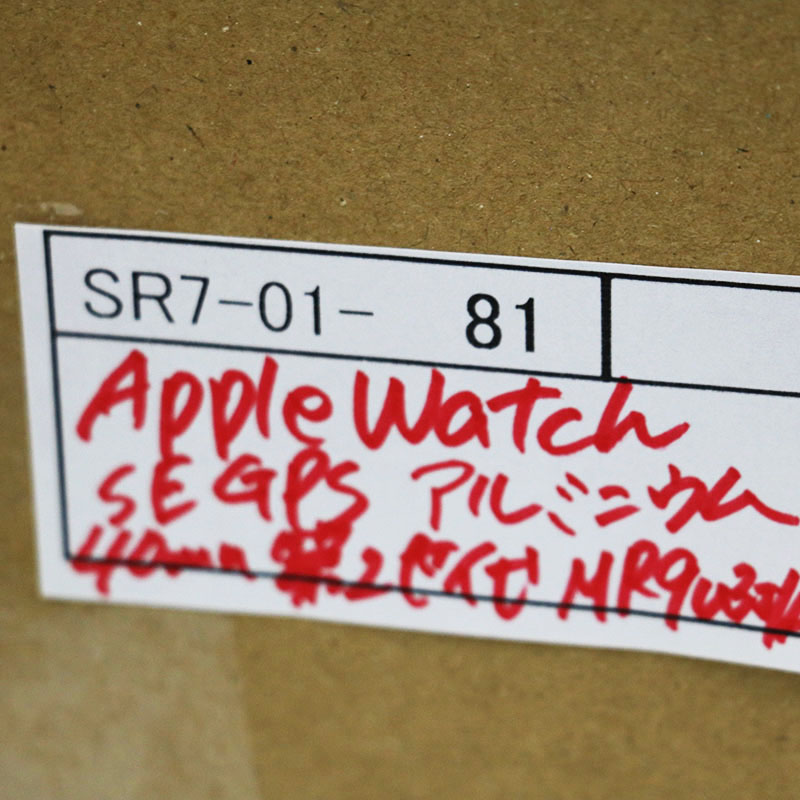 SR7-01- 81
Apple Watch
SE GPS アルミニウム
40mm 第2せだい MR9U3J/